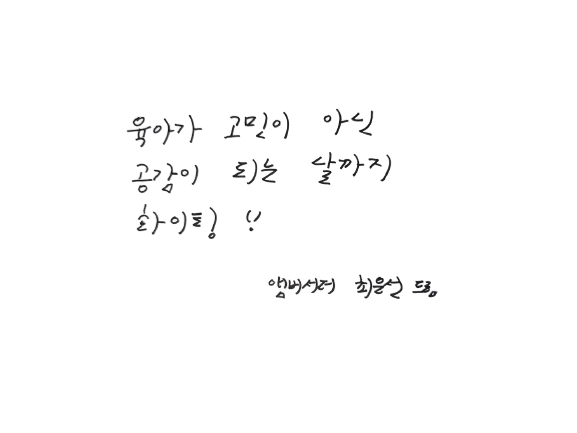 육아가 고민이 아닌
공감이 되는 날까지
화이팅 !!
앰버서더 최윤선 드림